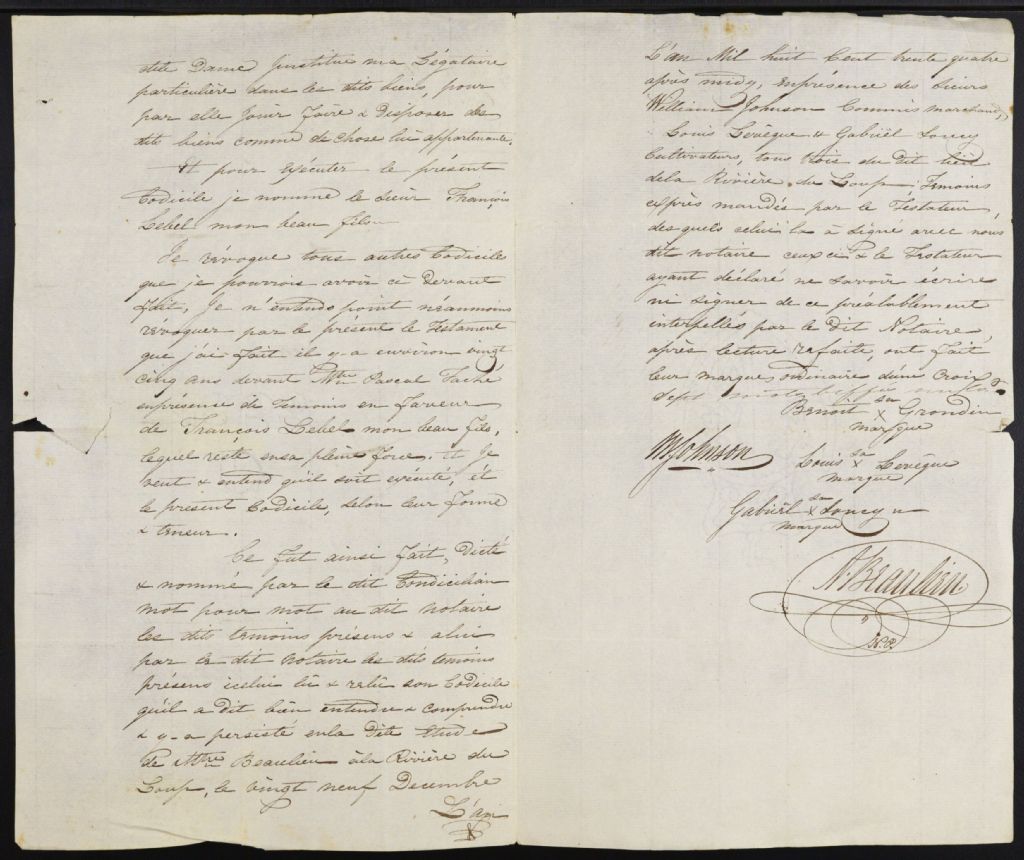 dite Dame J'institue ma Légataire
particulière dans les dits biens, pour
par elle Jouir Faire & Disposer des
dits biens comme de chose lui appartenante.
Et pour éxécuter le présent
Codicile je nomme le Sieur François
Lebel mon beau fils
Je révoque tous autres Codicile
que je pourrois avoir ci Devant
Fait, Je n'entends point néanmoins
révoquer par le présent le Testament
que j'ai Fait il y-a environ vingt
cinq ans devant Mtre Pascal Taché
enprésense de Temoins en Faveur
de François Lebel mon beau fils,
lequel reste ensa pleine Force. Et Je
veut & entend qu'il soit exécuté, ét
le présent Codicile, selon leur Forme
& teneur.
Ce fut ainsi Fait, Dicté
& nommé par le dit Condicilian
mot pour mot au dit notaire
les dits temoins présens & à lui
par le dit notaire les dits temoins
présens icelui lû & relû son Codicile
qu'il a dit bien entendre & comprendre
& y-a persisté enla Dite Etude
de Mtre Beaulieu àla Rivière du
Loup, le vingt neuf Decembre
L'an
L'an Mil huit Cent trente quatre
après midy, enprésence des Sieurs
William Johnson Commis marchand,
Louis Levêque & Gabriël Soucy
Cultivateurs, tous trois du dit lieu
dela Rivière du Loup, Temoins
exprès mandés par le Testateur,
desquels celui la à signé avec nous
dit notaire ceux ci & le Testateur
ayant déclaré ne savoir écrire
ni signer de ce préalablement
interpellés par le dit Notaire
après lecture refaite, ont Fait
leur marque ordinaire d'une Croix
Sept mots
sa
Benoit x Grondin
marque
WJohnson
sa
Louis x Levêque
marque
sa
Gabriël x Soucy
marque
A. Beaulieu
N.P.